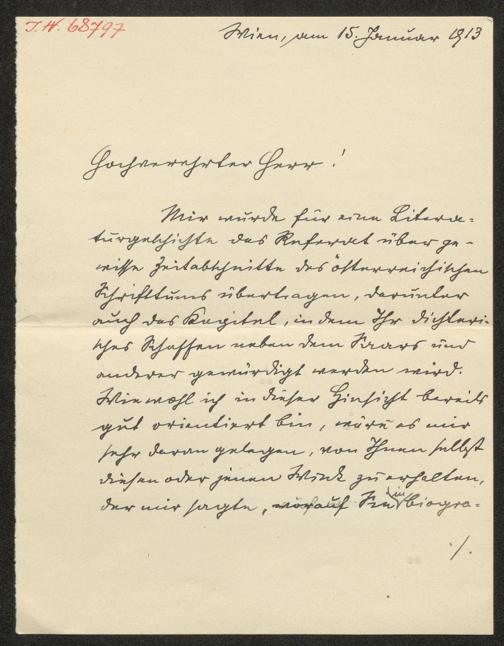 I. N. 68797
Wien, am 15. Januar 1913
Hochverehrter Herr!
Mir wurde für eine Litera-
turgeschichte das Referat über ge-
wisse Zeitabschnitte des österreichischen
Schrifttums übertragen, darunter
auch das Kapitel, in dem Ihr dichteri-
sches Schaffen neben dem Saars und
anderer gewürdigt werden wird.
Wiewohl ich in dieser Hinsicht bereits
gut orientiert bin, wäre es mir
sehr daran gelegen, von Ihnen selbst
diesen oder jenen Wink zu erhalten,
der mir sagte, worauf Sie in biogra-
./.